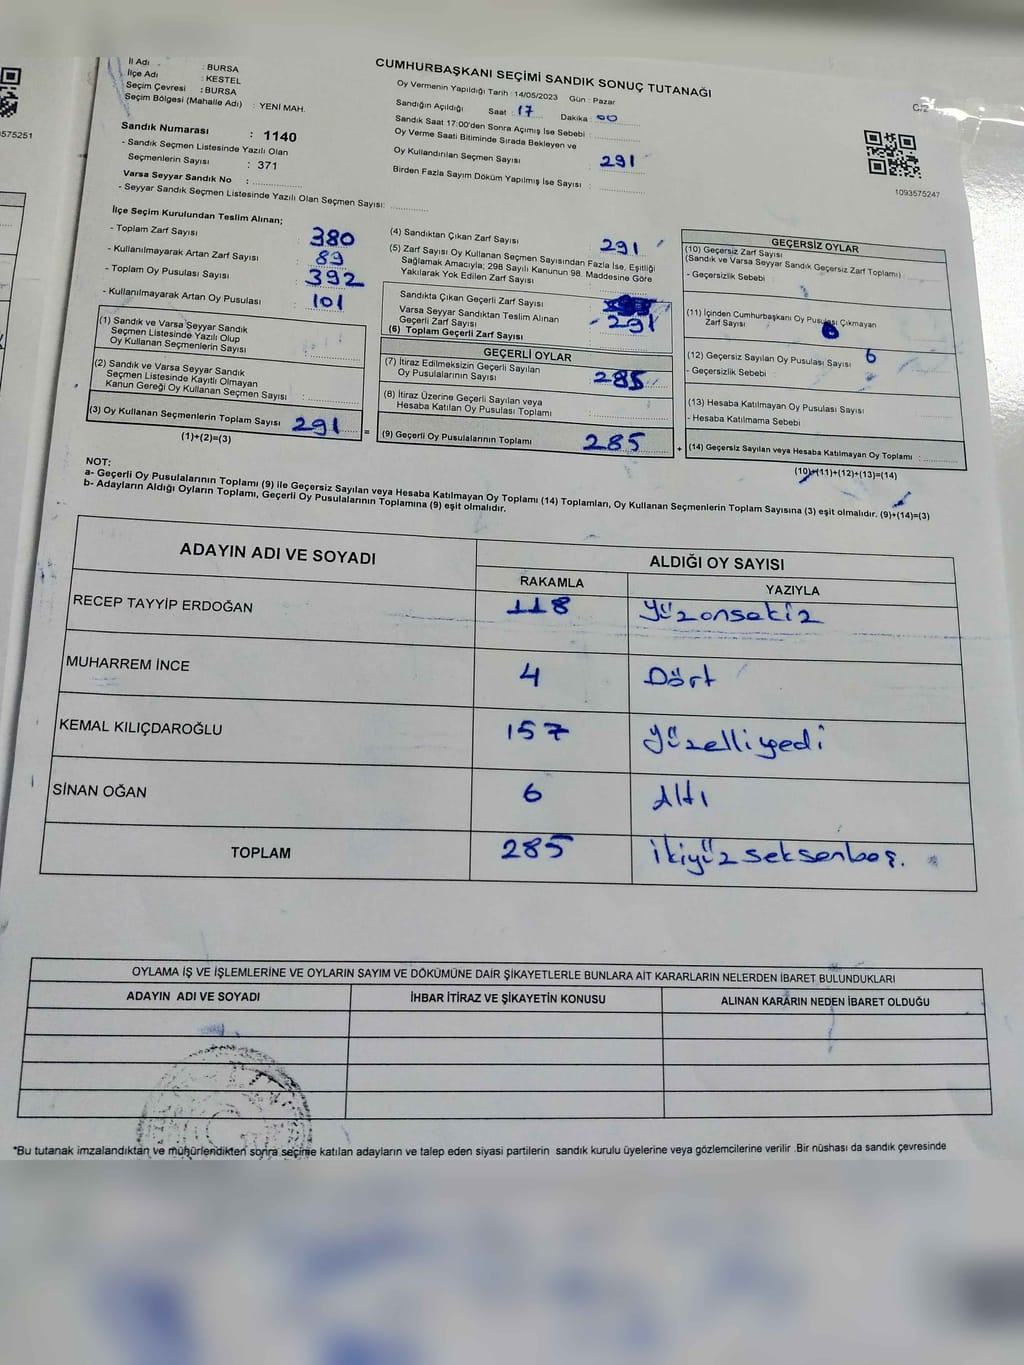 575251
CUMHURBAŞKANI SEÇİMİ SANDIK SONUÇ TUTANAĞI
İl Adı : BURSA
İlçe Adı : KESTEL
Seçim Çevresi : BURSA
Seçim Bölgesi (Mahalle Adı) : YENİ MAH.
Oy Vermenin Yapıldığı Tarih : 14/05/2023 Gün : Pazar
Sandığın Açıldığı Saat : 17 Dakika : 00
Sandık Saat 17:00'den Sonra Açımış İse Sebebi :
Oy Verme Saati Bitiminde Sırada Bekleyen ve
Oy Kullandırılan Seçmen Sayısı 291
Birden Fazla Sayım Döküm Yapılmış İse Sayısı :
C/2
1093575247
Sandık Numarası : 1140
- Sandık Seçmen Listesinde Yazılı Olan
Seçmenlerin Sayısı : 371
Varsa Seyyar Sandık No :
- Seyyar Sandık Seçmen Listesinde Yazılı Olan Seçmen Sayısı:
İlçe Seçim Kurulundan Teslim Alınan;
- Toplam Zarf Sayısı : 380
- Kullanılmayarak Artan Zarf Sayısı : 89
- Toplam Oy Pusulası Sayısı : 392
- Kullanılmayarak Artan Oy Pusulası : 101
(1) Sandık ve Varsa Seyyar Sandık
Seçmen Listesinde Yazılı Olup
Oy Kullanan Seçmenlerin Sayısı :
(2) Sandık ve Varsa Seyyar Sandık
Seçmen Listesinde Kayıtlı Olmayan
Kanun Gereği Oy Kullanan Seçmen Sayısı :
(3) Oy Kullanan Seçmenlerin Toplam Sayısı 291 =
(1)+(2)=(3)
(4) Sandıktan Çıkan Zarf Sayısı 291
(5) Zarf Sayısı Oy Kullanan Seçmen Sayısından Fazla İse, Eşitliği
Sağlamak Amacıyla; 298 Sayılı Kanunun 98. Maddesine Göre
Yakılarak Yok Edilen Zarf Sayısı :
Sandıkta Çıkan Geçerli Zarf Sayısı
Varsa Seyyar Sandıktan Teslim Alınan
Geçerli Zarf Sayısı : 291
(6) Toplam Geçerli Zarf Sayısı
GEÇERLİ OYLAR
(7) İtiraz Edilmeksizin Geçerli Sayılan
Oy Pusulalarının Sayısı : 285
(8) İtiraz Üzerine Geçerli Sayılan veya
Hesaba Katılan Oy Pusulası Toplamı :
(9) Geçerli Oy Pusulalarının Toplamı 285 +
GEÇERSİZ OYLAR
(10) Geçersiz Zarf Sayısı
(Sandık ve Varsa Seyyar Sandık Geçersiz Zarf Toplamı)
- Geçersizlik Sebebi
(11) İçinden Cumhurbaşkanı Oy Pusulası Çıkmayan
Zarf Sayısı
(12) Geçersiz Sayılan Oy Pusulası Sayısı 6
- Geçersizlik Sebebi :
(13) Hesaba Katılmayan Oy Pusulası Sayısı :
- Hesaba Katılmama Sebebi
(14) Geçersiz Sayılan veya Hesaba Katılmayan Oy Toplamı :
(10)+(11)+(12)+(13)=(14)
NOT:
a- Geçerli Oy Pusulalarının Toplamı (9) ile Geçersiz Sayılan veya Hesaba Katılmayan Oy Toplamı (14) Toplamları, Oy Kullanan Seçmenlerin Toplam Sayısına (3) eşit olmalıdır. (9)+(14)=(3)
b- Adayların Aldığı Oyların Toplamı, Geçerli Oy Pusulalarının Toplamına (9) eşit olmalıdır.
ADAYIN ADI VE SOYADI ALDIĞI OY SAYISI
RAKAMLA YAZIYLA
RECEP TAYYİP ERDOĞAN 118 Yüzonsekiz
MUHARREM İNCE 4 Dört
KEMAL KILIÇDAROĞLU 157 Yüzelliyedi
SİNAN OĞAN 6 Altı
TOPLAM 285 ikiyüzseksenbeş.
OYLAMA İŞ VE İŞLEMLERİNE VE OYLARIN SAYIM VE DÖKÜMÜNE DAİR ŞİKAYETLERLE BUNLARA AİT KARARLARIN NELERDEN İBARET BULUNDUKLARI
ADAYIN ADI VE SOYADI İHBAR İTİRAZ VE ŞİKAYETİN KONUSU ALINAN KARARIN NEDEN İBARET OLDUĞU
*Bu tutanak imzalandıktan ve mühürlendikten sonra seçime katılan adayların ve talep eden siyasi partilerin sandık kurulu üyelerine veya gözlemcilerine verilir .Bir nüshası da sandık çevresinde